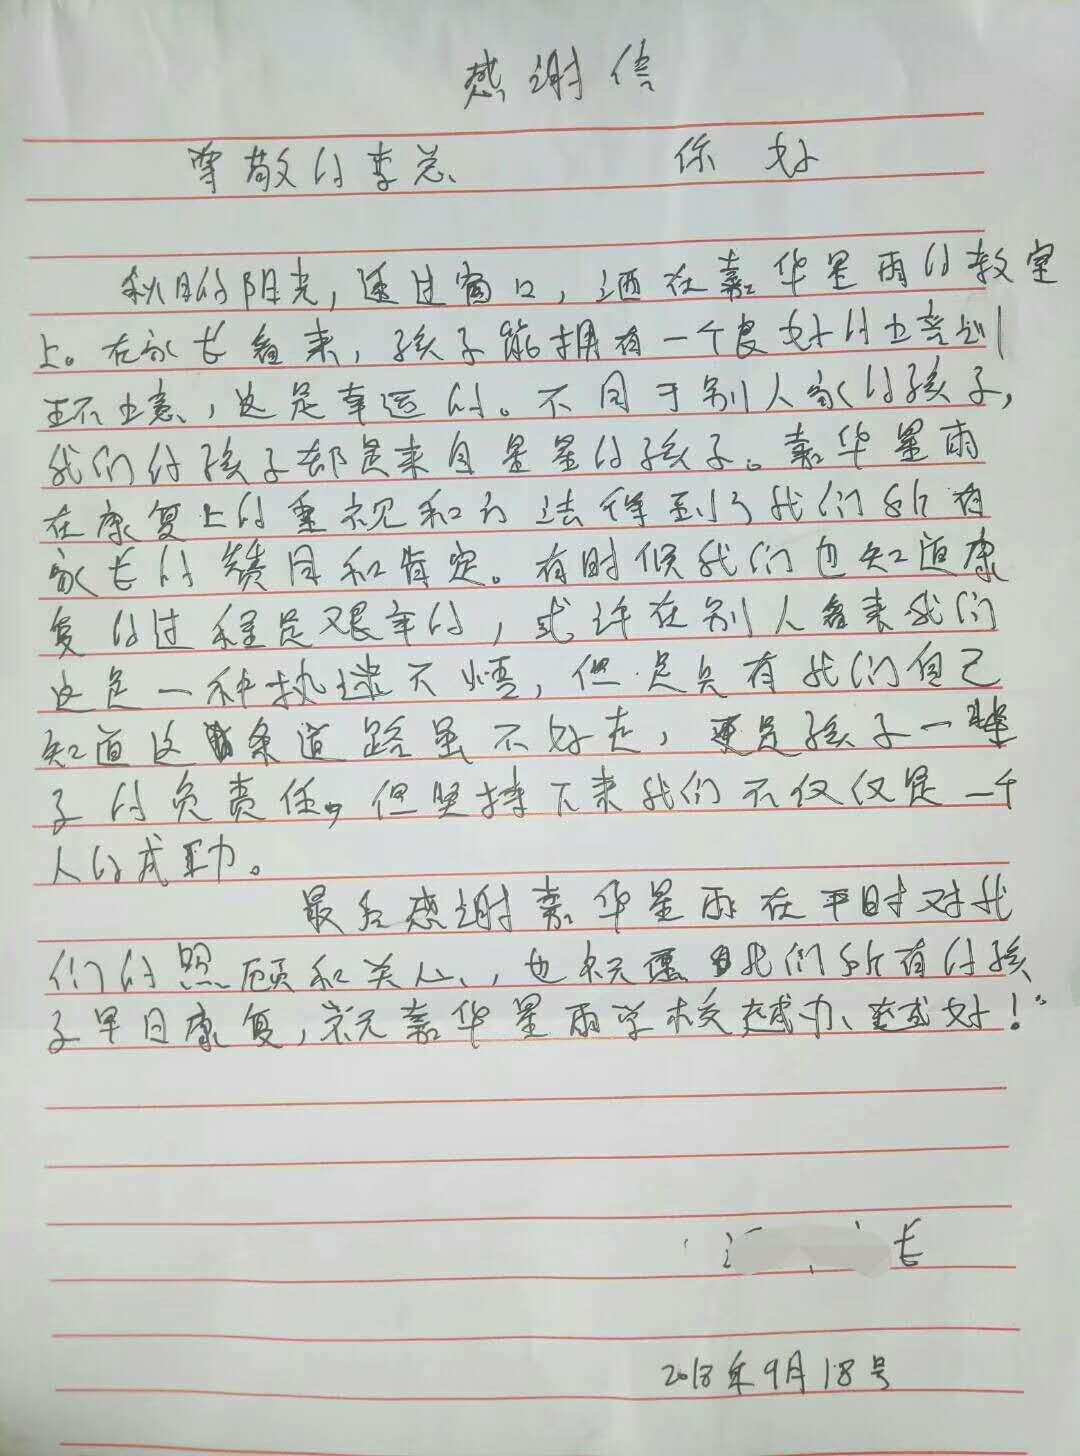 感谢信
尊敬的李总、 你好
秋日的阳光，透过窗口，洒在嘉华星雨的教室
上。在家长看来，孩子能拥有一个良好的
环，这是幸运的。不同于别人家的孩子，
我们的孩子都是来自星星的孩子。嘉华星雨
在康复上的重视和方法得到了我们所有
家长的赞同和肯定。有时候我们也知道康
复的过程是艰辛的，或许在别人看来我们
这是一种执迷不悟，但是只有我们自己
知道这条道路虽不好走，更是孩子一辈
子的负责任。但坚持下来我们不仅仅是一个
人的成功。
最后感谢嘉华星雨在平时对我
们的照顾和关心、，也祝愿我们所有的孩
子早日康复，祝嘉华星雨学校越办、越好！
长
2018年9月18号